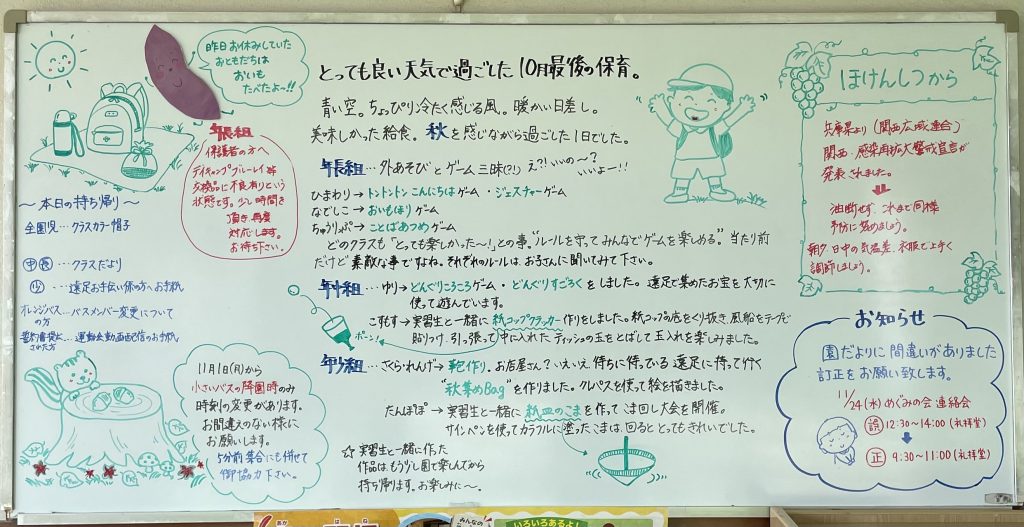 昨日お休みしていた
おともだちは
おいも
たべたよっ!!
とっても良い天気で過ごした10月最後の保育。
青い空。ちょっぴり冷たく感じる風。暖かい日差し。
美味しかった給食。秋を感じながら過ごした1日でした。
年長組…外あそびとゲーム三昧(?!) え?!いいの〜? いいよー!!
ひまわり→トントントンこんにちはゲーム・ジェスチャーゲーム
なでしこ→おいもほりゲーム
ちゅうりっぷ→ことばあつめゲーム
どのクラスも"とっても楽しかった〜!"との事。"ルールを守ってみんなでゲームを楽しめる"当たり前
だけど素敵な事ですよね。それぞれのルールは、お子さんに聞いてみて下さい。
年中組…ゆり→どんぐりころころゲーム・どんぐりすごろくをしました。遠足で集めたお宝を大切に
使って遊んでいます。
こすもす→実習生と一緒に紙コップクラッカー作りをしました。紙コップの底をくり抜き、風船をテープで
貼りつけ、引っ張って中に入れたティッシュの玉をとばして玉入れを楽しみました。
ポーン!
年少組…さくら・れんげ→鞄作り。お店屋さん?いえいえ待ちに待っている遠足に持って行く
"秋集めBag"を作りました。クレパスを使って絵を描きました。
たんぽぽ→実習生と一緒に紙皿のこまを作ってこま回し大会を開催。
サインペンを使ってカラフルに塗ったこまは、回るととってもきれいでした。
☆実習生と一緒に作った
作品は、もう少し園で楽しんでから
持ち帰ります。お楽しみに〜。
年長組
保護者の方へ
デイキャンプブルーレイ
交換品に不良有りという
状態です。少し時間を
頂き、再度
対応します。
お待ち下さい。
〜本日の持ち帰り〜
全園児…クラスカラー帽子
中 長…クラスだより
少…遠足お手伝い係の方へお手紙
オレンジバス…バスメンバー変更について
の方
誓約書提出…運動会動画配信のお手紙
された方
11月1日(月)から
小さいバスの降園時のみ
時刻の変更があります。
お間違えのない様に
お願いします。
5分前集合にも併せて
御協力下さい。
ほけんしつから
兵庫県より(関西広域連合)
関西・感染再拡大警戒宣言が
発表されました。
油断せず、これまで同様
予防に努めましょう。
朝夕、日中の気温差、衣服で上手く
調節しましょう。
お知らせ
園だよりに間違いがありました
訂正をお願い致します。
11/24(水)めぐみの会 連絡会
誤 12:30〜14:00(礼拝堂)
正 9:30〜11:00(礼拝堂)
いろいろあるよ!
みんなの